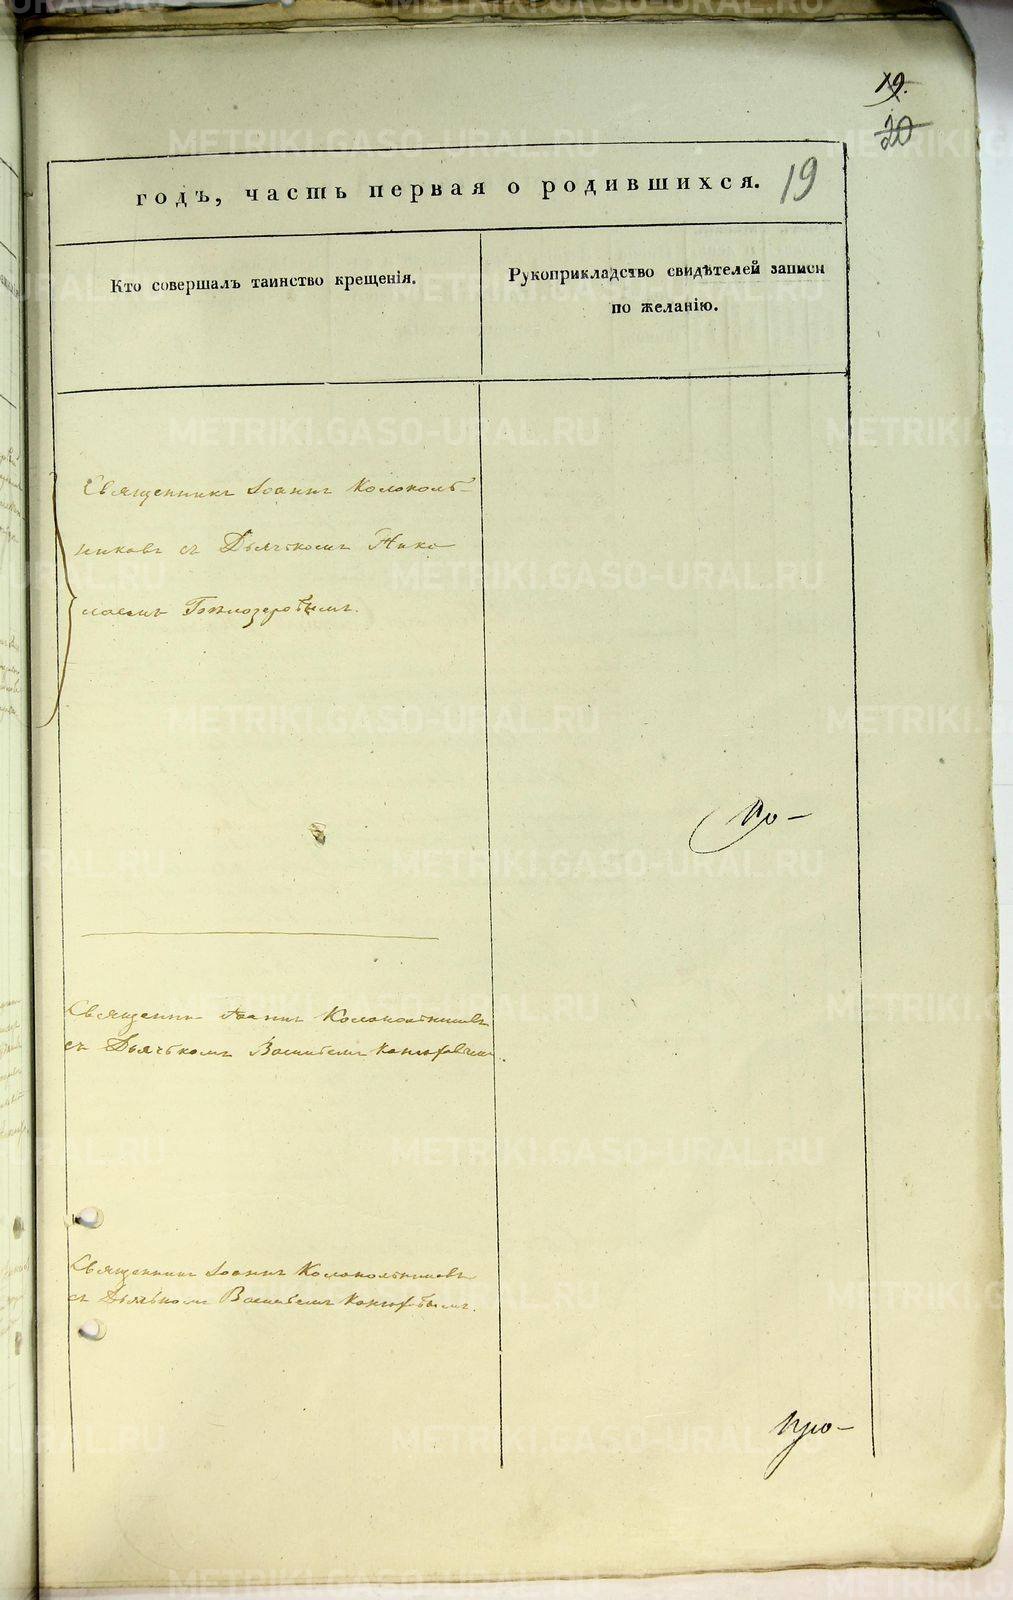 19.
20
19
годъ, часть первая о родившихся.
Кто совершалъ таинство крещенія.
Рукоприкладство свидѣтелей записи
по желанію.
Священникъ Іоаннъ Колоколь-
никовъ съ Дьячкомъ Нико
лаемъ
По-
Священни Іоаннъ Колокольниковъ
съ Дьячкомъ Васильемъ
Священникъ Іоаннъ Колокольниковъ
съ Дьячкомъ Васильемъ
про-
METRIKI.GASO-URAL.RU